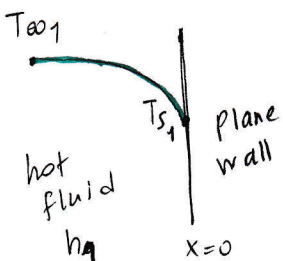 T∞1
Ts1
plane
wall
hot
fluid
h1
x=0